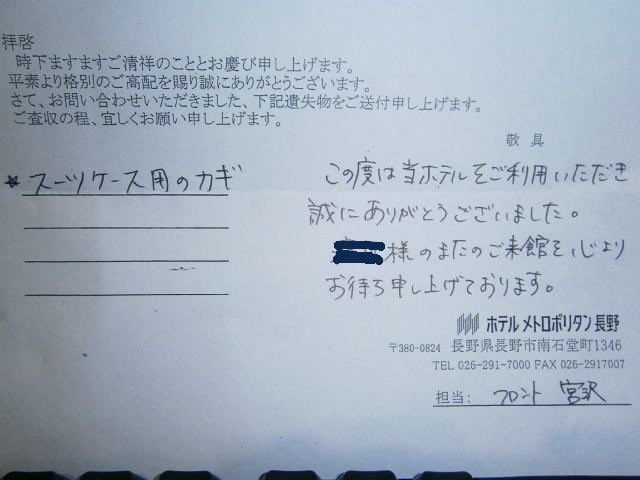 拝啓
時下ますますご清祥のこととお慶び申し上げます。
平素より格別のご高配を賜り誠にありがとうございます。
さて、お問い合わせいただきました、下記遺失物をご送付申し上げます。
ご査収の程、宜しくお願い申し上げます。
敬具
* スーツケース用のカギ
この度は当ホテルをご利用いただき
誠にありがとうございました。
様のまたのご来館を心より
お待ち申し上げております。
ホテル メトロポリタン長野
〒380-0824 長野県長野市南石堂町1346
TEL 026-291-7000 FAX 026-2917007
担当: フロント 宮沢